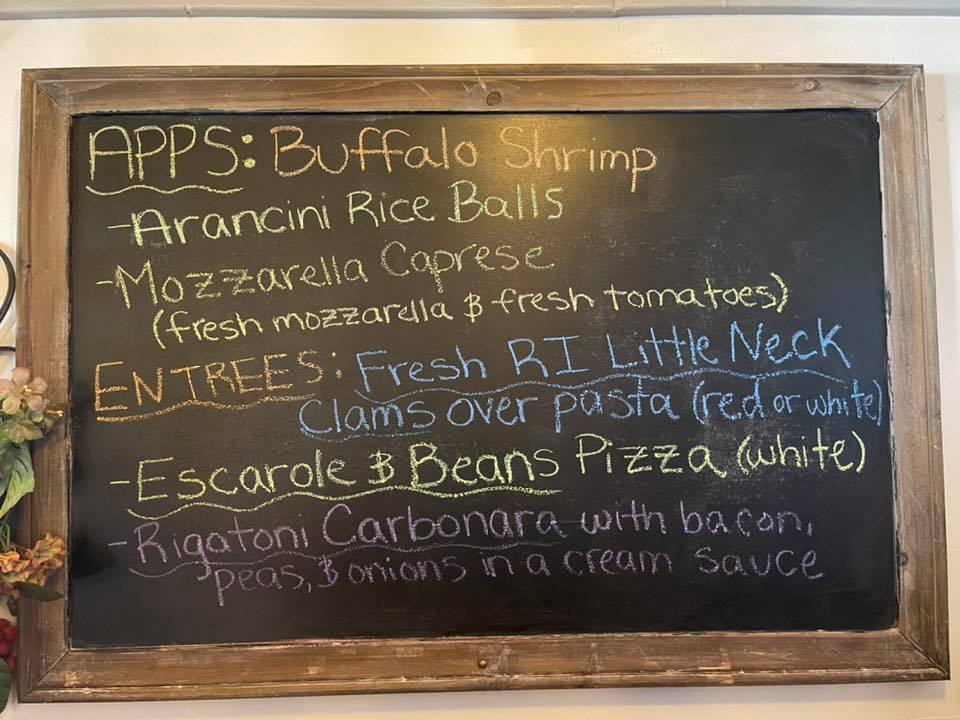 APPS: Buffalo Shrimp
-Arancini Rice Balls
-Mozzarella Caprese
(fresh mozzarella & fresh tomatoes)
ENTREES: Fresh RI Little Neck
Clams over pasta (red or white)
-Escarole & Beans Pizza (white)
-Rigatoni Carbonara with bacon,
peas, & onions in a cream sauce